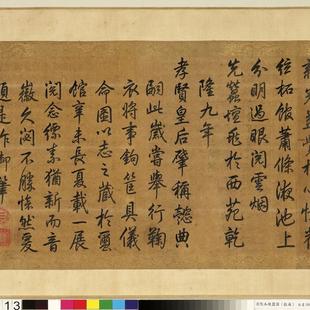 往柘館蕭條液池上
分明過眼閱雲烟
先蠶壇成於西苑乾
隆九年
孝賢皇后肇稱懿典
嗣此歲嘗舉行鞠
衣將事鉤筐具儀
命圖以志之藏於蠶
館辛未長夏載一展
閱念緗素猶新而音
徽久閟不勝悵然爰
題是作御筆
13